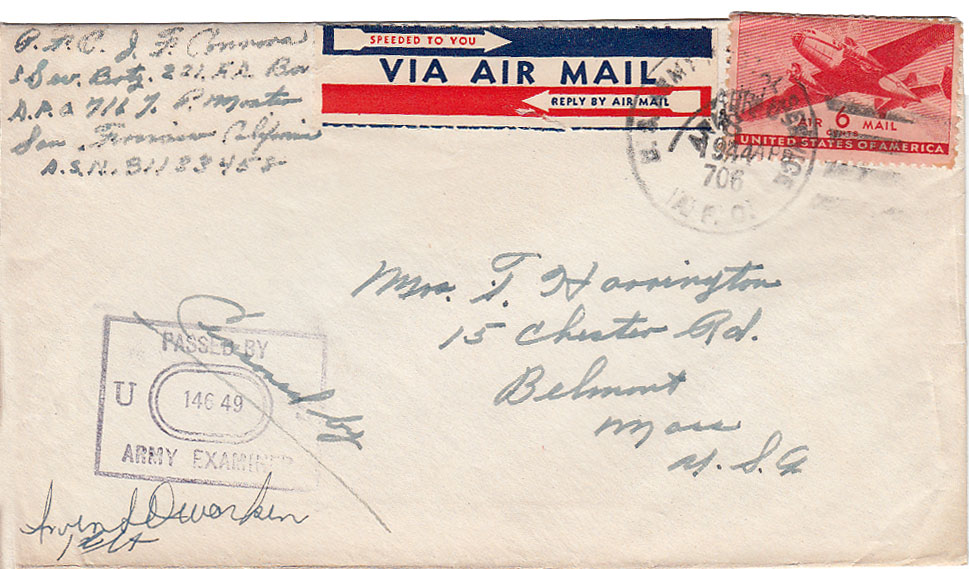 P.F.C. J. F. Connors
S Serv. Btry. 221. F.A. Bn
A.P.O 716 % P. Master
San Francisco California
A.S.N. 31133458
SPEEDED TO YOU
VIA AIR MAIL
REPLY BY AIR MAIL
AIR 6 MAIL
CENTS
UNITED STATES OF AMERICA
U.S. ARMY
1944
706
A.P.O.
Mrs. T. Harrington
15 Chester Rd.
Belmont
Mass
U. S. A
PASSED BY
U
146 49
ARMY EXAMINER
Censored by
1st Lt